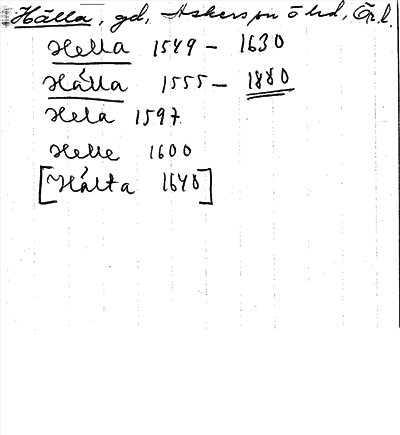 Hälla, gd, Askers sn ö hd, Ör.l.
Hella 1549 - 1630
Hälla 1555 - 1880
Hela 1597
Helle 1600
[Hälta 1640]